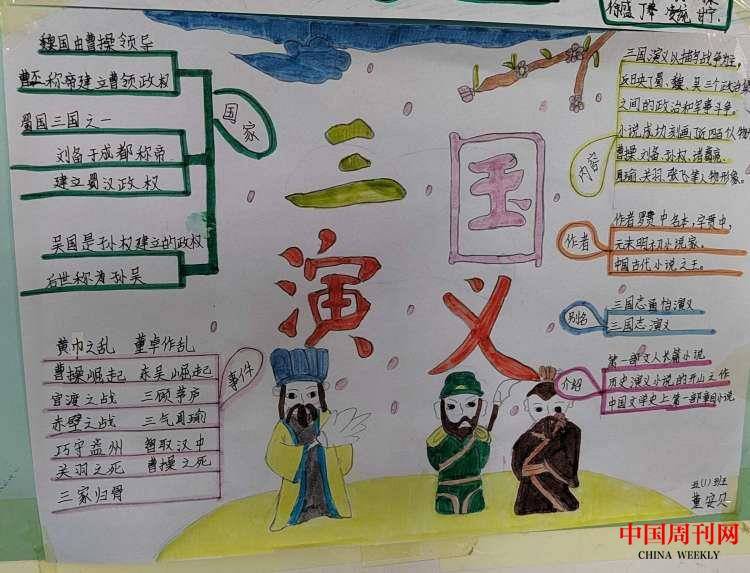 徐盛 丁奉 安统 甘宁
三国演义
魏国由曹操领导
曹丕称帝建立曹领政权
蜀国三国之一
刘备于成都称帝
建立蜀汉政权
吴国是孙权建立的政权
后世称为孙吴
国家
三国演义以描写战争为主,
反映了蜀、魏、吴三个政治集
之间的政治和军事斗争。
小说成功刻画了近四百个人物
曹操、刘备、孙权、诸葛亮、
周瑜、关羽、张飞等人物形象。
内容
作者罗贯中名本,字贯中,
元末明初小说家。
中国古代小说之王。
作者
三国志通俗演义
三国志演义
别名
第一部文人长篇小说
历史演义小说的开山之作
中国文学史上第一部章回小说
介绍
黄巾之乱 董卓作乱
曹操崛起 东吴崛起
官渡之战 三顾茅庐
赤壁之战 三气周瑜
巧守益州 智取汉中
关羽之死 曹操之死
三家归晋
事件
五(1)班
董安贝
中国周刊网
CHINA WEEKLY